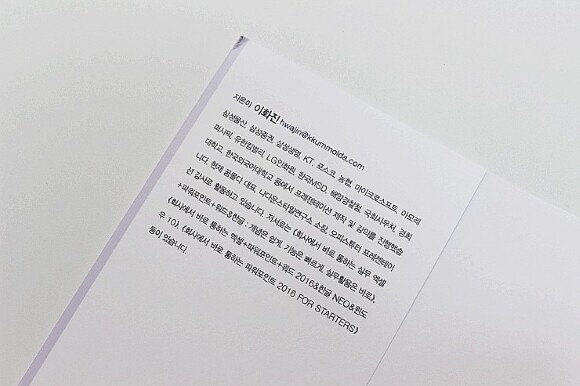 지은이 이화진 hwajin@kkummoida.com
삼성물산, 삼성증권, 삼성생명, KT, 포스코, 농협, 마이크로소프트, 아모레
퍼시픽, 유한킴벌리, LG인화원, 한국MSD, 해양경찰청, 국회사무처, 경희
대학교, 한국외국어대학교 등에서 프레젠테이션 제작 및 강의를 진행했습
니다. 현재 꿈몰다 대표, 나다운스타일연구소 소장, 오피스튜터 프레젠테이
션 강사로 활동하고 있습니다. 저서로는 《회사에서 바로 통하는 실무 엑셀
+파워포인트+워드&한글 : 개념은 쉽게, 기능은 빠르게, 실무활용은 바로》,
《회사에서 바로 통하는 엑셀+파워포인트+워드 2016&한글 NEO&윈도
우 10》, 《회사에서 바로 통하는 파워포인트 2016 FOR STARTERS》
등이 있습니다.